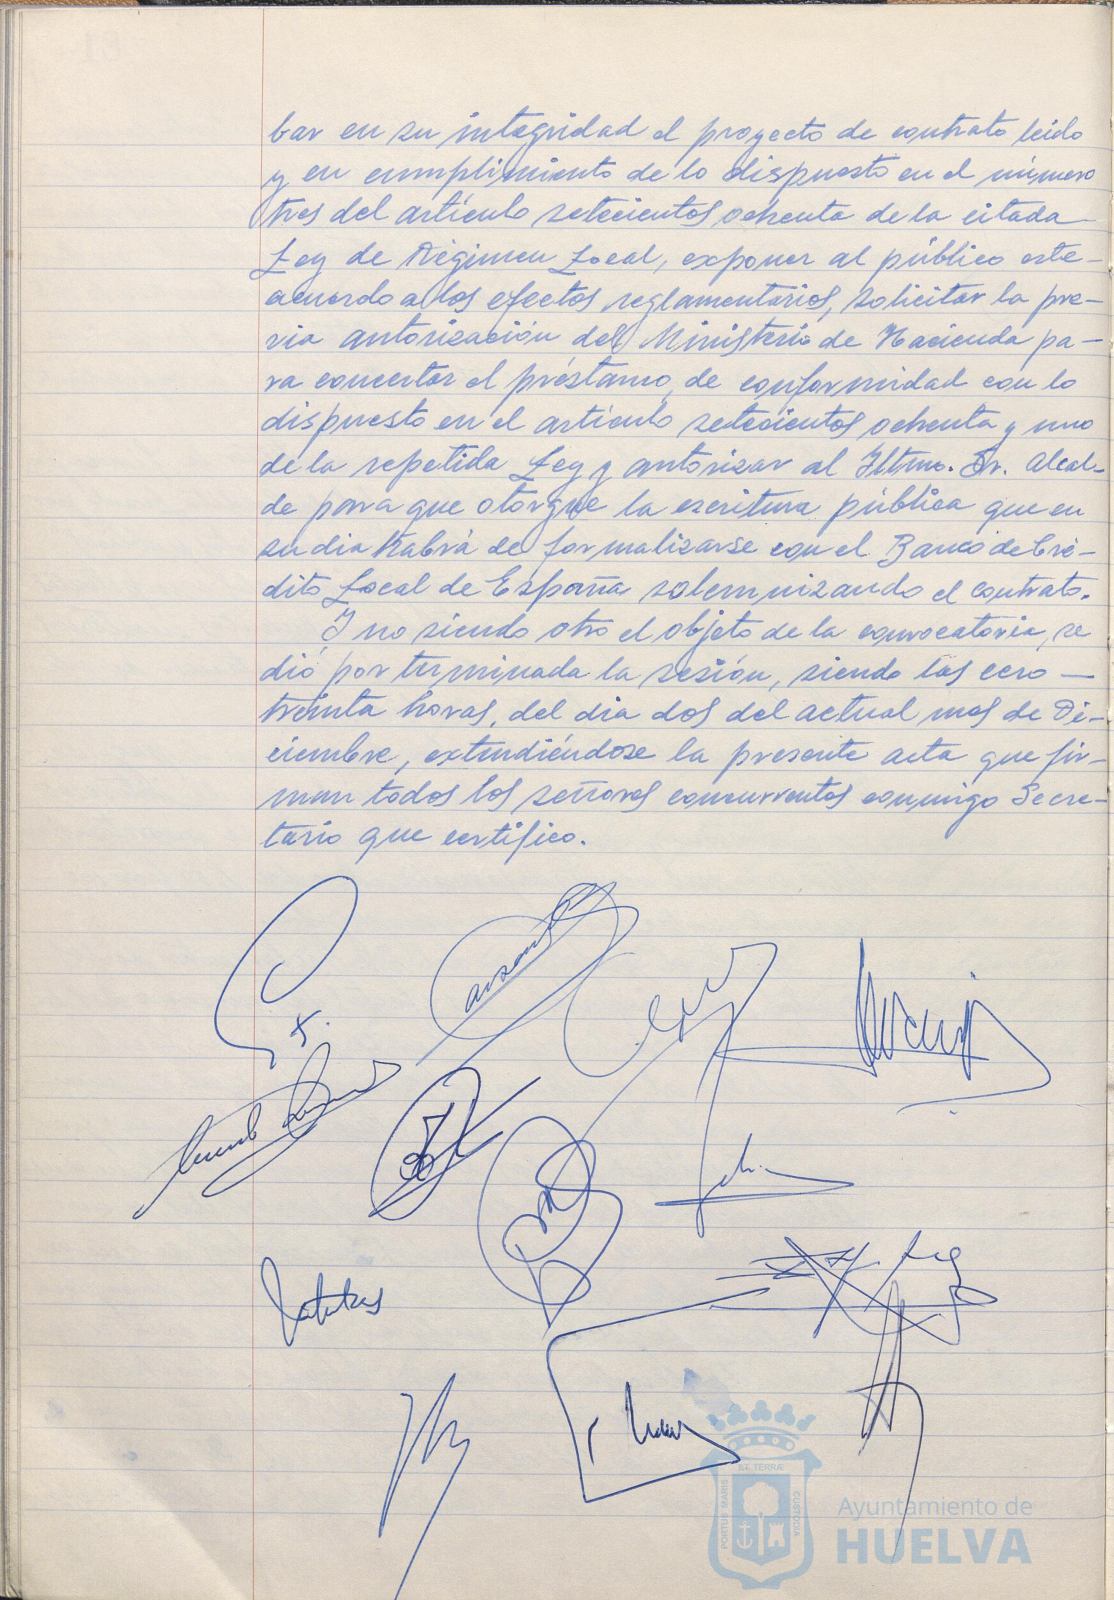 bar en su integridad el proyecto de contrato leído
y en cumplimiento de lo dispuesto en el número
tres del artículo setecientos ochenta de la citada
Ley de Régimen Local, exponer al público este
acuerdo a los efectos reglamentarios, solicitar la pre-
via autorización del Ministerio de Hacienda pa-
ra concertar el préstamo, de conformidad con lo
dispuesto en el artículo setecientos ochenta y uno
de la repetida Ley y autorizar al Iltmo. Sr. Alcal-
de para que otorgue la escritura pública que en
su dia habrá de formalizarse con el Banco de Cré-
dito Local de España solemnizando el contrato.
Y no siendo otro el objeto de la convocatoria, se
dió por terminada la sesión, siendo las cero
treinta horas, del dia dos del actual mes de Di-
ciembre, extendiéndose la presente acta que fir-
man todos los señores concurrentes conmigo Secre-
tario que certifico.
PORTUS MARIS
ET TERRÆ
CUSTODIA
Ayuntamiento de
HUELVA